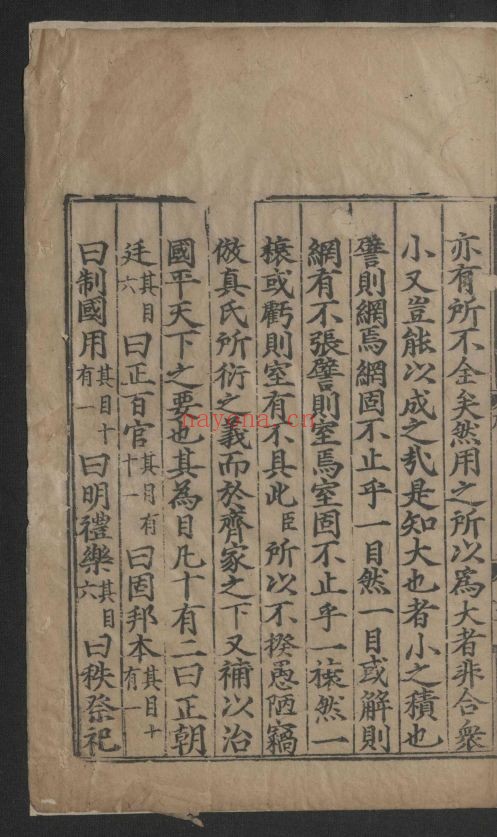 亦有所不全矣然用之所以爲大者非合衆
小又豈能以成之㢤是知大也者小之積也
譬則網焉網固不止乎一目然一目或解則
網有不張譬則室焉室固不止乎一榱然一
榱或虧則室有不具此臣所以不揆愚陋竊
倣真氏所衍之義而於齊家之下又補以治
國平天下之要也其為目凡十有二曰正朝
廷其目六曰正百官其目有十一曰固邦本其目十有一
曰制國用其目十有一曰明禮樂其目六曰秩祭祀
nayona.cn